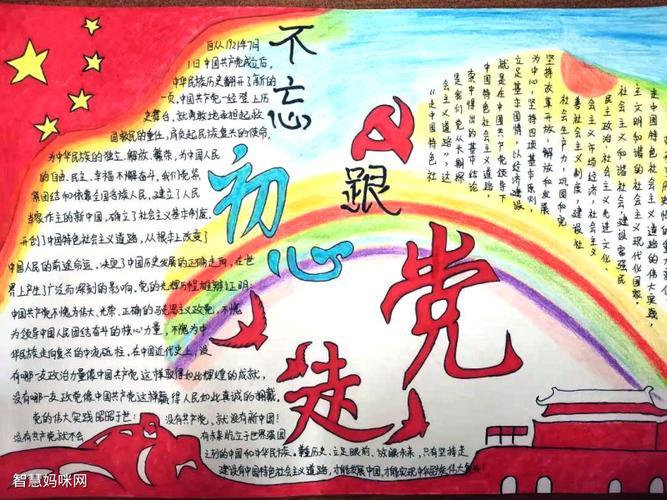 不忘
初心
跟
党
走
自从1921年7月
1日中国共产党成立后,
中华民族历史翻开了新的
一页,中国共产党一经登上历
史舞台,就勇敢地牵担起救
国救民的重任,肩负起民族复兴的使命,
为中华民族的独立、解放、繁荣,为中国人民
的自由、民主、幸福不懈奋斗,我们党紧
紧团结和依靠全国各族人民,建立了人民
当家作主的新中国,确立了社会主义基本制度,
开创了中国特色社会主义道路,从根本上改变了
中国人民的前途命运,决定了中国历史发展的正确走向,在世
界上产生了广泛而深刻的影响,党的光辉历程雄辩证明:
中国共产党不愧为伟大、光荣、正确的马克思主义政党,不愧
为领导中国人民团结奋斗的核心力量,不愧为中
华民族走向复兴的中流砥柱,在中国近代史上,没
有哪一支政治力量像中国共产党这样取得如此辉煌的成就,
没有哪一支政党像中国共产党这样赢得人民如此真诚的拥戴,
党的伟大实践昭昭于世:没有共产党,就没有新中国!
没有共产党就不会有未来屹立于世界强国
之列的中国和中华民族。鞭历史、立足眼前、放眼未来,只有坚持走
建设有中国特色社会主义道路,才能发展中国,才能实现中华民族伟大复兴!
走中国特色社会主义道路,
是我们党从长期探
索中得出的基本结论
中国特色社会主义道路,
就是在中国共产党领导下
立足基本国情,以经济建设
为中心,坚持四项基本原则
坚持改革开放,解放和发展
社会生产力,巩固和完
善社会主义制度,建设社
会主义市场经济、社会主义
民主政治、社会主义先进文化、
社会主义和谐社会,建设富强民
主文明和谐的社会主义现代化国家。
智慧妈咪网